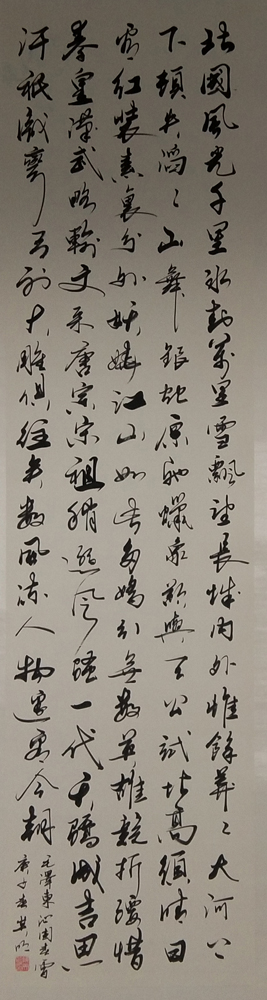 北國風光千里冰封萬里雪飄望長城內外惟餘莽〻大河上
下頓失滔〻山舞銀蛇原馳蠟象欲與天公試比高須晴日
看紅裝素裹分外妖嬈江山如此多嬌引無數英雄競折腰惜
秦皇漢武略輸文采唐宗宋祖稍遜風騷一代天驕成吉思
汗祇識彎弓射大雕俱往矣數風流人物還看今朝
毛澤東沁園春雪